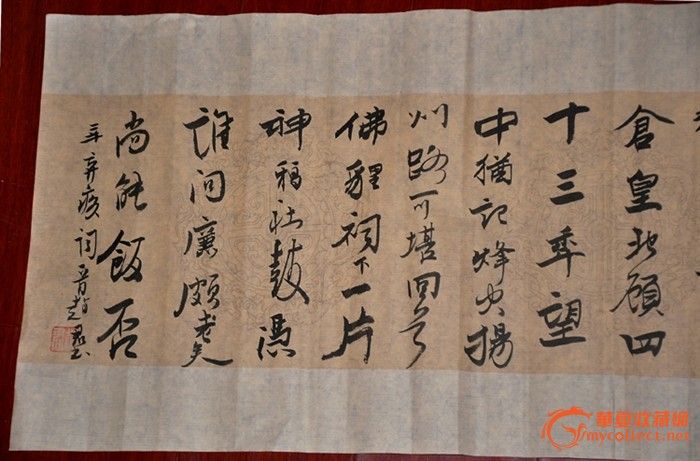 倉皇北顧四
十三年望
中猶記烽火揚
州路可堪回首
佛貍祠下一片
神鴉社鼓憑
誰問廉頗老矣
尚能飯否
辛弃疾詞晋趙書
華夏收藏網
mycollect.net